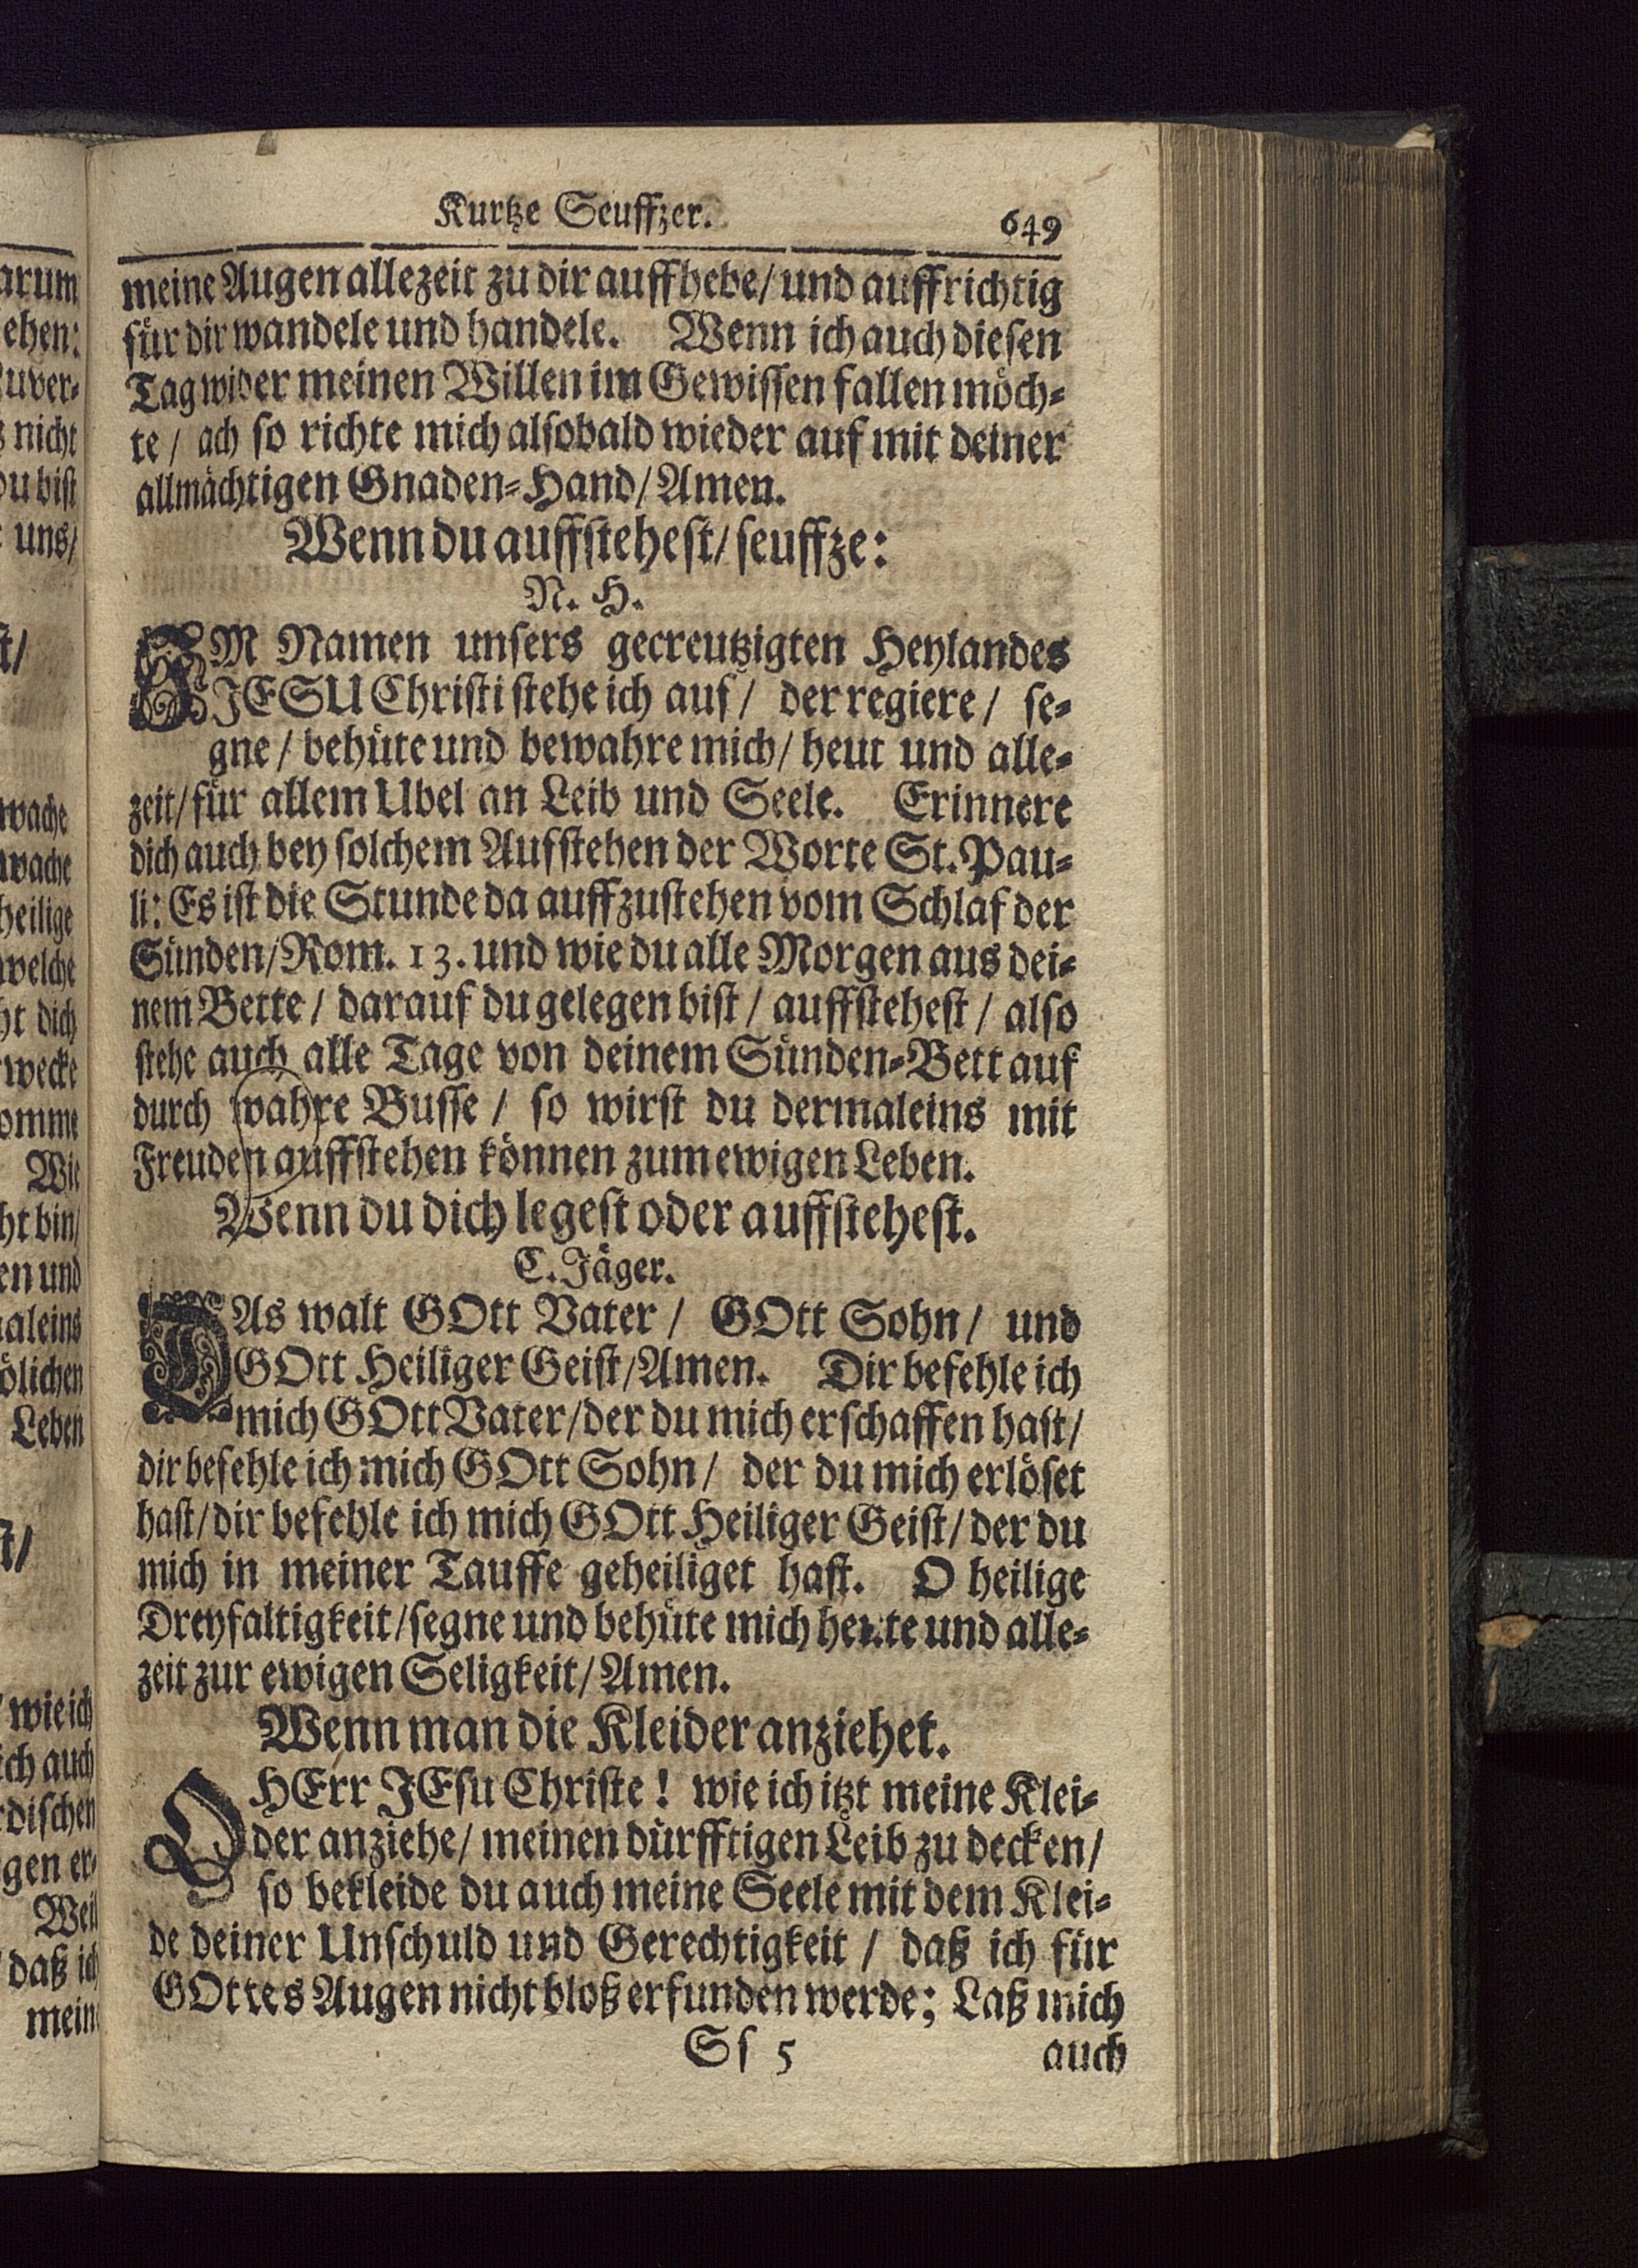 Kurtze Seuffzer. 649
meine Augen allezeit zu dir auffhebe/ und auffrichtig
für dir wandele und handele. Wenn ich auch diesen
Tag wider meinen Willen im Gewissen fallen möch-
te/ ach so richte mich alsobald wieder auf mit deiner
allmächtigen Gnaden-Hand/ Amen.
Wenn du auffstehest/ seuffze:
N. H.
IM Namen unsers gecreutzigten Heylandes
JESU Christi stehe ich auf/ der regiere/ se-
gne/ behüte und bewahre mich/ heut und alle-
zeit/ für allem Ubel an Leib und Seele. Erinnere
dich auch bey solchem Aufstehen der Worte St. Pau-
li: Es ist die Stunde da auffzustehen vom Schlaf der
Sünden/ Rom. 13. und wie du alle Morgen aus dei-
nem Bette/ darauf du gelegen bist/ auffstehest/ also
stehe auch alle Tage von deinem Sünden-Bett auf
durch wahre Busse/ so wirst du dermaleins mit
Freuden auffstehen können zum ewigen Leben.
Wenn du dich legest oder auffstehest.
C. Jäger.
DAs walt GOtt Vater/ GOtt Sohn/ und
GOtt Heiliger Geist/ Amen. Dir befehle ich
mich GOtt Vater/ der du mich erschaffen hast/
dir befehle ich mich GOtt Sohn/ der du mich erlöset
hast/ dir befehle ich mich GOtt Heiliger Geist/ der du
mich in meiner Tauffe geheiliget hast. O heilige
Dreyfaltigkeit/ segne und behüte mich heute und alle-
zeit zur ewigen Seligkeit/ Amen.
Wenn man die Kleider anziehet.
O HErr JEsu Christe! wie ich itzt meine Klei-
der anziehe/ meinen dürfftigen Leib zu decken/
so bekleide du auch meine Seele mit dem Klei-
de deiner Unschuld und Gerechtigkeit/ daß ich für
GOttes Augen nicht bloß erfunden werde; Laß mich
Ss 5 auch